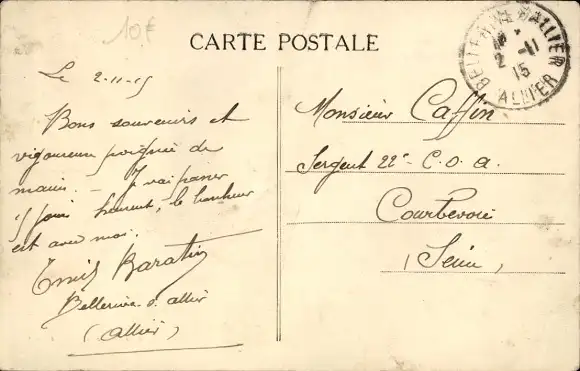 10 €
CARTE POSTALE
BELLERIVE S ALLIER
2 -11
15
ALLIER
Le 2-11-15
Bons souvenirs et
vigoureuse poignée de
main. - J'y vais passer
jours heureux, le bonheur
est avec moi.
Emile Baratin
Bellerive s. allier
(Allier)
Monsieur Caffin
Sergent 22e C.O.A.
Courbevoie
(Seine)